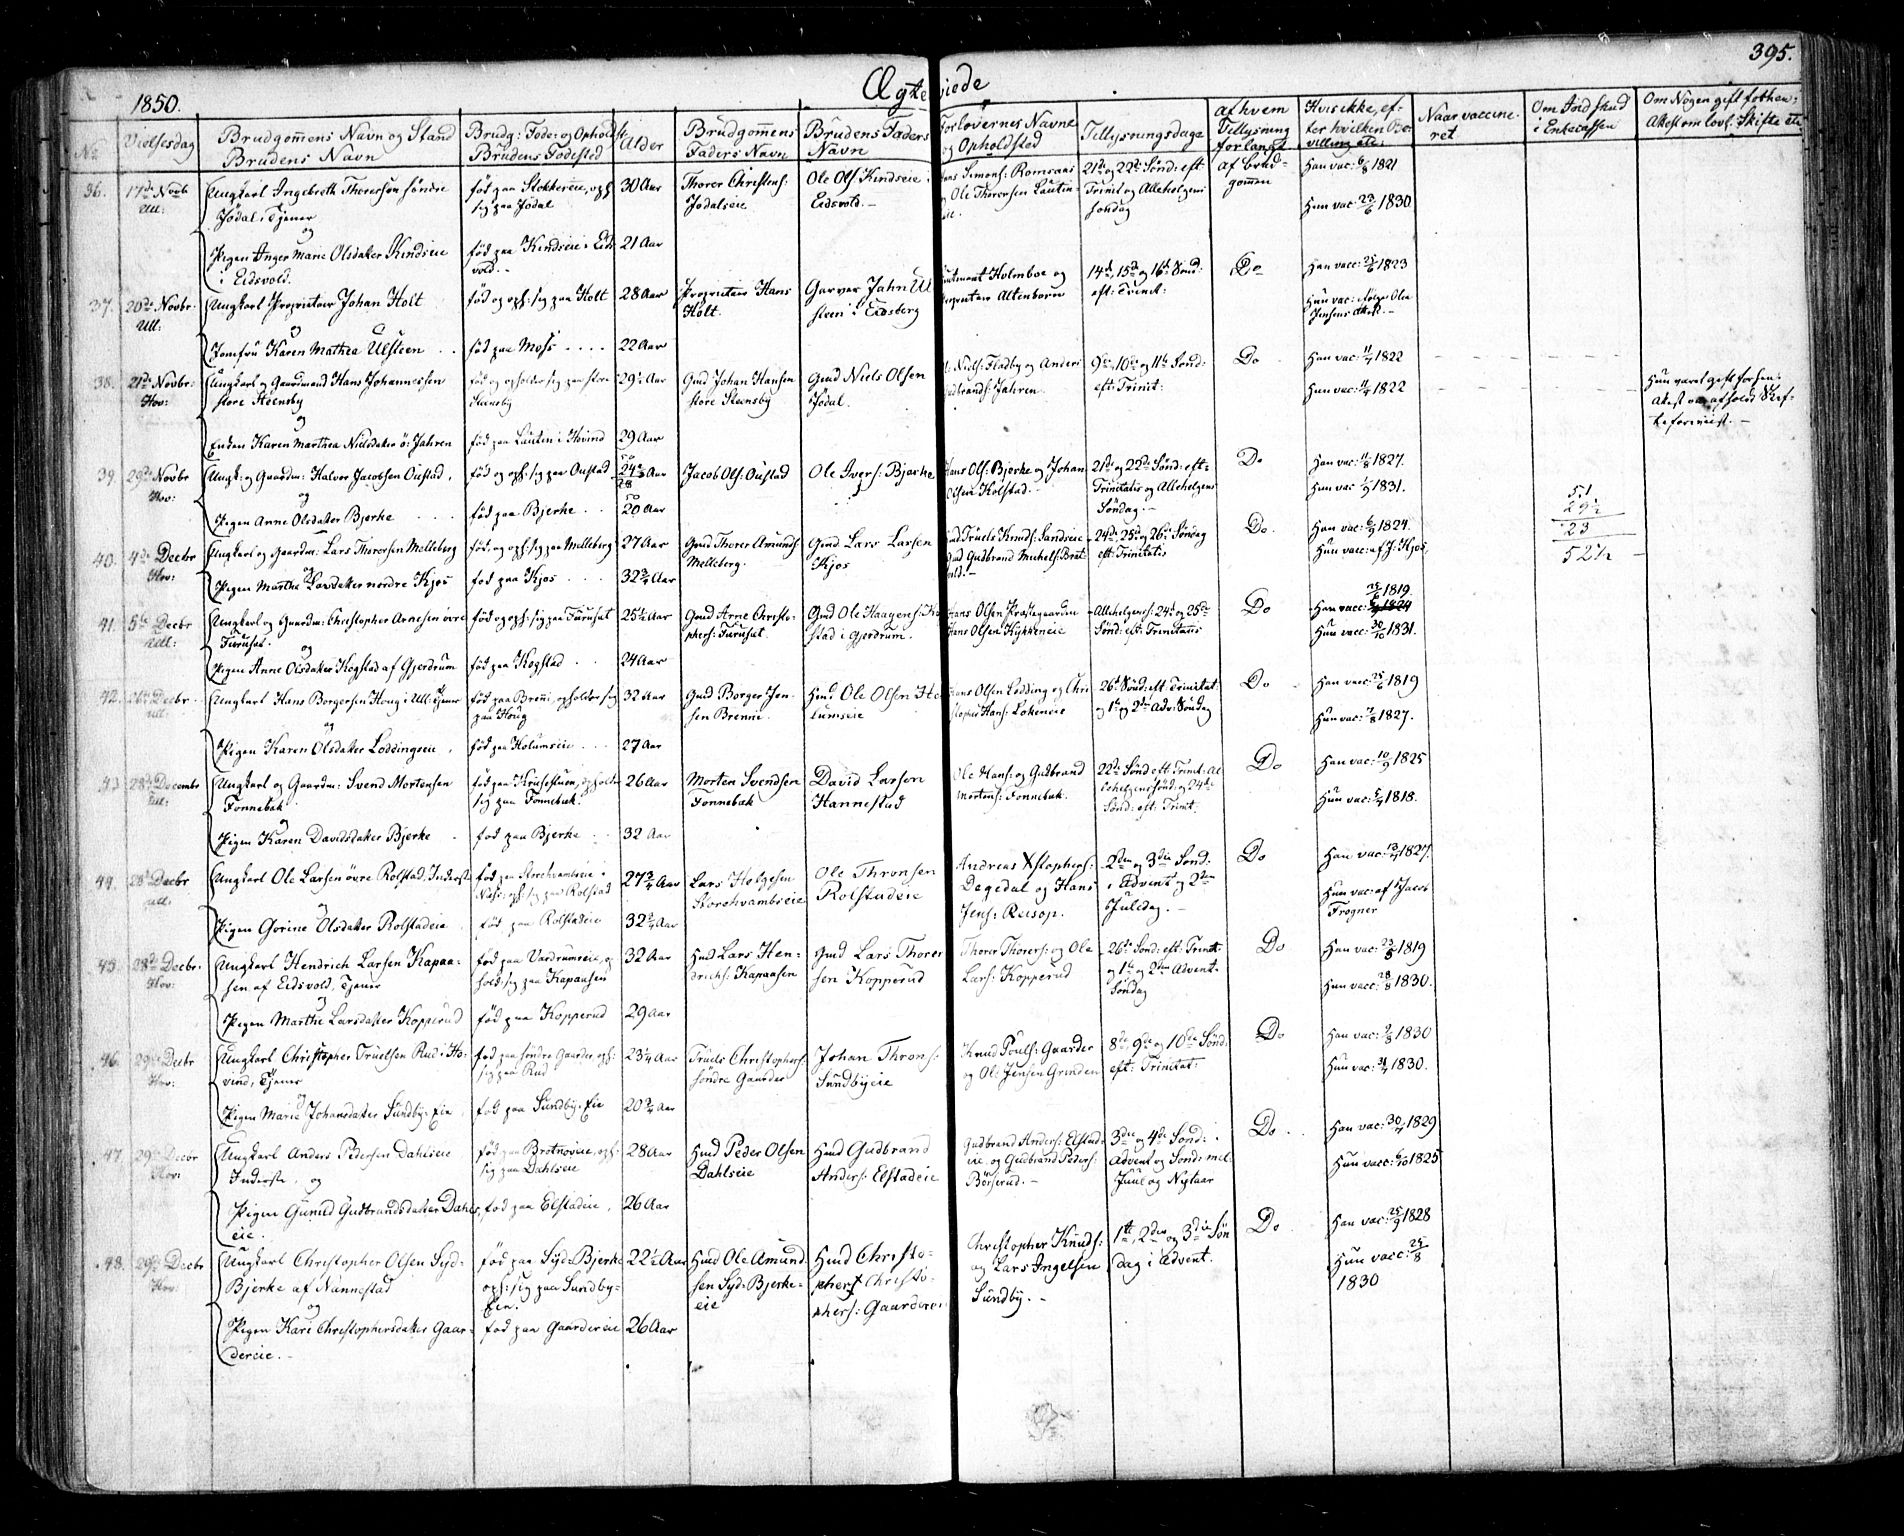 395.
1850.
Ægteviede
No
Vielsesdag
Brudgommens Navn og Stand
Brudens Navn
Brudg: Føde: og Opholdst
Brudens Fødested
Alder
Brudgommens
Faders Navn
Brudens Faders
Navn
Forlovernes Navne
og Opholdsted
Tillysningsdage
af hvem
Tillysning
forlanget
Hvis ikke, ef-
ter hvilken Be-
villing etc:
Naar vaccine-
ret
Om Indskud
i Enkecassen
Om Nogen gift forhen;
Attest om lovl: Skifte etc
36.
17de Novb
Ull:
Ungkarl Ingebreth Thorersen søndre
Jødal, Tjener
og
Pigen Inger Marie Olsdatter Kindseie
i Eidsvold.
fød paa Stokkereie, oph:
sig paa Jødal
fød paa Kindseie i Eids
vold.
30 Aar
21 Aar
Thorer Christens:
Jødalseie
Ole Ols: Kindseie i
Eidsvold.
Simens: Romsaas
Ole Thorersen Lautin-
21de og 22de Sønd: eft:
Trinit og Allehelgens
søndag
af Brud-
gommen
Han vac: 6/8 1821
Hun vac: 23/6 1830
37.
20de Novbr
Ull:
Ungkarl Proprietair Johan Holt
og
Jomfru Karen Mathea Ulsteen
fød og oph: sig paa Holt
fød paa Moss
28 Aar
22 Aar
Proprietair Hans
Holt.
Garver Jahn Ul
steen i Eidsberg
Holmboe og
Altenborn
14de, 15de og 16de Sønd:
eft: Trinit:
Do
Han vacc: 25/6 1823
Hun vac: ifølge Ole
Jensens Attest.
38.
21de Novbr:
Hov:
Ungkarl og Gaardmand Hans Johannessen
store Steensby
og
Enken Karen Marthea Nielsdatter ø: Jahren
fød og opholder sig paa store
Steensby
fød paa Lautin i Hovind
29½ Aar
29 Aar
Gmd Johan Hansen
store Steensby
Gmd Niels Olsen
Jødal.
Niels: Fladby og Anders
Gudbrands: Jahren.
9de, 10de og 11te Sønd:
eft: Trinit:
Do
Han vac: 11/7 1822
Hun vac: 11/7 1822
Hun været gift forhen;
Attest om afholdt Skif-
te foreviist.
39.
29de Novbr
Hov:
Ungk: og Gaardm: Halvor Jacobsen Oustad
og
Pigen Anne Olsdatter Bjerke
fød og oph: sig paa Oustad
fød paa Bjerke
24 Aar
20 Aar
Jacob Ols: Oustad
Ole Ivers: Bjerke
Hans Ols: Bjerke og Johan
Olsen Holstad.
21de og 22de Sønd: eft:
Trinitatis og Allehelgens
Søndag.
Do
Han vac: 11/8 1827.
Hun vac 1/9 1831.
51
29½
23
52½
40.
4de Decbr
Hov:
Ungkarl og Gaardm: Lars Thorersen Melleberg
og
Pigen Marthe Larsdatter nordre Kjos
fød, og oph: sig paa Melleberg
fød paa Kjos
27 Aar
32¾ Aar
Gmd Thorer Amunds:
Melleberg.
Gmd Lars Larsen
Kjos
Truels Knuds: Sandseie
Gudbrand Michels: Brat
24de, 25de og 26de Søndag
eft: Trinitatis
Do.
Han vac: 6/9 1824.
Hun vacc: af J: Kjos
41.
5te Decbr
Ull:
Ungkarl og Gaardm: Christopher Arnesen øvre
Furuset.
og
Pigen Anne Olsdatter Kogstad af Gjerdrum
fød og oph: sig paa Furuset
fød paa Kogstad
25½ Aar
24 Aar
Gmd Arne Christo-
phers: Furuset.
Gmd Ole Haagens: Ko
stad i Gjerdrum.
Hans Olsen Præstegaarden
Hans Olsen Kykkeneie
Allehelgens: 24de og 25de
Sønd: eft: Trinitatis
Do
25/6 1819
Han vacc: 1824
Hun vacc: 30/10 1831.
42.
26de Decbr
Ull:
Ungkarl Hans Borgersen Houg i Ull: Tjener
og
Pigen Karen Olsdatter Loddingseie
fød paa Brenni, opholder sig
paa Houg
fød paa Holumseie
32 Aar
27 Aar
Gmd Borger Jen-
sen Brenne.
Hmd Ole Olsen Ho
lumseie
Hans Olsen Lodding og Chri
stopher Hans: Lokeneie
26de Sønd: eft: Trinitat:
og 1te og 2den Adv: Søndag
Do
Han vacc: 25/6 1819
Hun vac: 7/8 1827.
43
28de Decembr
Ull:
Ungkarl og Gaardm: Svend Mortensen
Fonnebæk
og
Pigen Karen Davidsdatter Bjerke
fød paa Kruseslum, opholder
sig paa Fonnebæk.
fød paa Bjerke
26 Aar
32 Aar
Morten Svendsen
Fonnebæk
David Larsen
Hannestad
Ole Hans: og Gudbrand
Mortens: Fonnebæk.
22de Sønd eft: Trinit: Al
lehelgenssønd: og 24de
Sønd: eft: Trinit.
Do
Han vac: 10/9 1825
Hun vac: 5/9 1818.
44.
28de Decbr
Ull:
Ungkarl Ole Larsen øvre Rolstad, Inderst
og
Pigen Gorine Olsdatter Rolstadeie
fød paa Storchvambseie i
Næs: oph: sig paa Rolstad
fød paa Rolstadeie
27¾ Aar
32¾ Aar
Lars Helgesen
Storchvambseie
Ole Thronsen
Rolstadeie
Andreas Xstophers:
Degedal og Hans
Jens: Reisop.
2den og 3die Sønd:
i Advent og 2den
Juledag.
Do
Han vac: 13/7 1827.
Hun vac: af Jacob
Frogner
45.
28de Decbr.
Hov:
Ungkarl Hendrich Larsen Kapaa-
sen af Eidsvold, Tjener
og
Pigen Marthe Larsdatter Kopperud
fød paa Vardrumseie, op
hold: sig paa Kapaasen
fød paa Kopperud
32 Aar
29 Aar
Hmd Lars Hen-
drichs: Kapaasen
Gmd Lars Thorer
sen Kopperud
Thorer Thorers: og Ole
Lars: Kopperud
26de Sønd: eft: Trinit:
og 1te og 2den Advent-
Søndag
Do
Han vac: 23/8 1819
Hun vacc: 28/8 1830.
46.
29de Decbr
Hov:
Ungkarl Christopher Truelsen Rud i Ho-
vind, Tjener
og
Pigen Marie Johansdatter Sundby-Eie
fød paa søndre Gaarder, oph:
sig paa Rud
fød paa Sundby-Eie
23¼ Aar
20¾ Aar
Truels Christophers:
søndre Gaarder
Johan Throns:
Sundbyeie
Knud Pouls: Gaarder
og Ol: Jensen Grinden
8de, 9de og 10de Sønd:
eft: Trinitat:
Do
Han vac: 2/8 1830
Hun vac: 1830.
47
29de Decbr
Hov:
Ungkarl Anders Pedersen Dahlseie
Inderste, og
Pigen Gunild Gudbrandsdatter Dahls
eie.
fød paa Brotnoeie, oph:
sig paa Dahlseie
fød paa Elstadeie
28 Aar
26 Aar
Hmd Peder Olsen
Dahlseie
Hmd Gudbrand
Anders: Elstadeie
Gudbrand Anders: Elstad-
eie, og Gudbrand Peders:
Børserud.
3die og 4de Sønd:
Advent og Sønd: mel:
Juul og Nytaar
Do
Han vac: 30/7 1829
Hun vacc: 6/10 1825
48.
29de Decbr
Hov:
Ungkarl Christopher Olsen Syd-
Bjerke af Nannestad
og
Pigen Kari Christophersdatter Gaar-
dereie.
fød paa Syd-Bjerke
oph: sig paa Sundby-
Eie.
fød paa Gaardereie
22½ Aar
26 Aar
Hmd Ole Amund
sen Syd-Bjerke-
eie
Hmd Christo-
pher Christo-
phers: Gaarderei
Christopher Knuds:
og Lars Ingelsen
Sundby.
1te, 2den og 3die Søn
dag i Advent.
Do
Han vac: 25/9 1828
Hun vacc: 25/8
1830